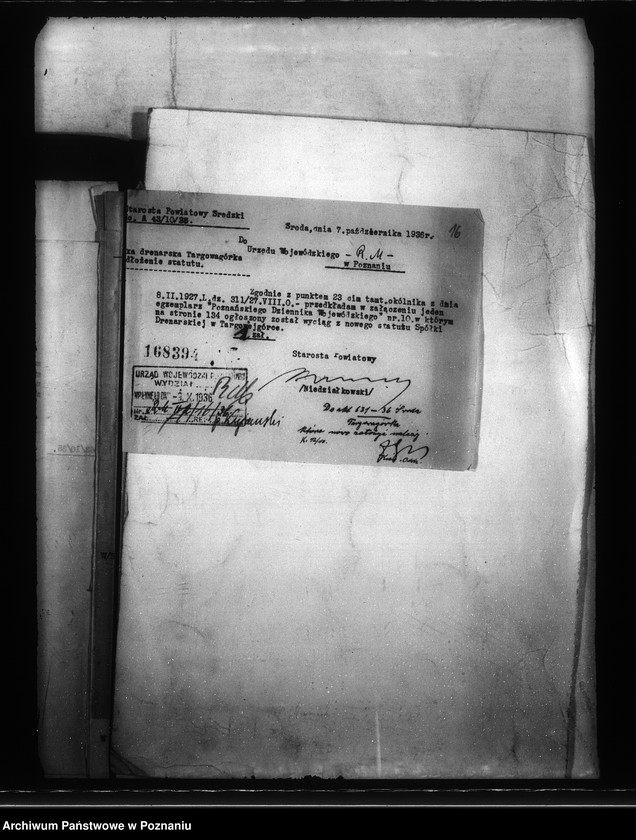 Starosta Powiatowy Sredzki
Środa, dnia 7. października 1936r.
16
A 43/10/35.
Do
Urzędu Wojewódzkiego - R.M -
w Poznaniu
ka drenarska Targowagórka
dłożenie statutu.
Zgodnie z punktem 23 cim tamt. okólnika z dnia
8.II.1927.L.dz. 311/27.VIII.O.- przedkładam w załączeniu jeden
egzemplarz "Poznańskiego Dziennika Wojewódzkiego" nr.10. w którym
na stronie 134 ogłoszony został wyciąg z nowego statutu Spółki
Drenarskiej w Targowejgórce.
1 zał.
168394
Starosta Powiatowy
URZĄD WOJEWÓDZKI
WYDZIAŁ
WPŁYNĘŁO DN. -9.X.1936
/Niedziałkowski/
Do akt 631-36 Środa
Targowagórka
które nowo założyć należy.
Archiwum Państwowe w Poznaniu